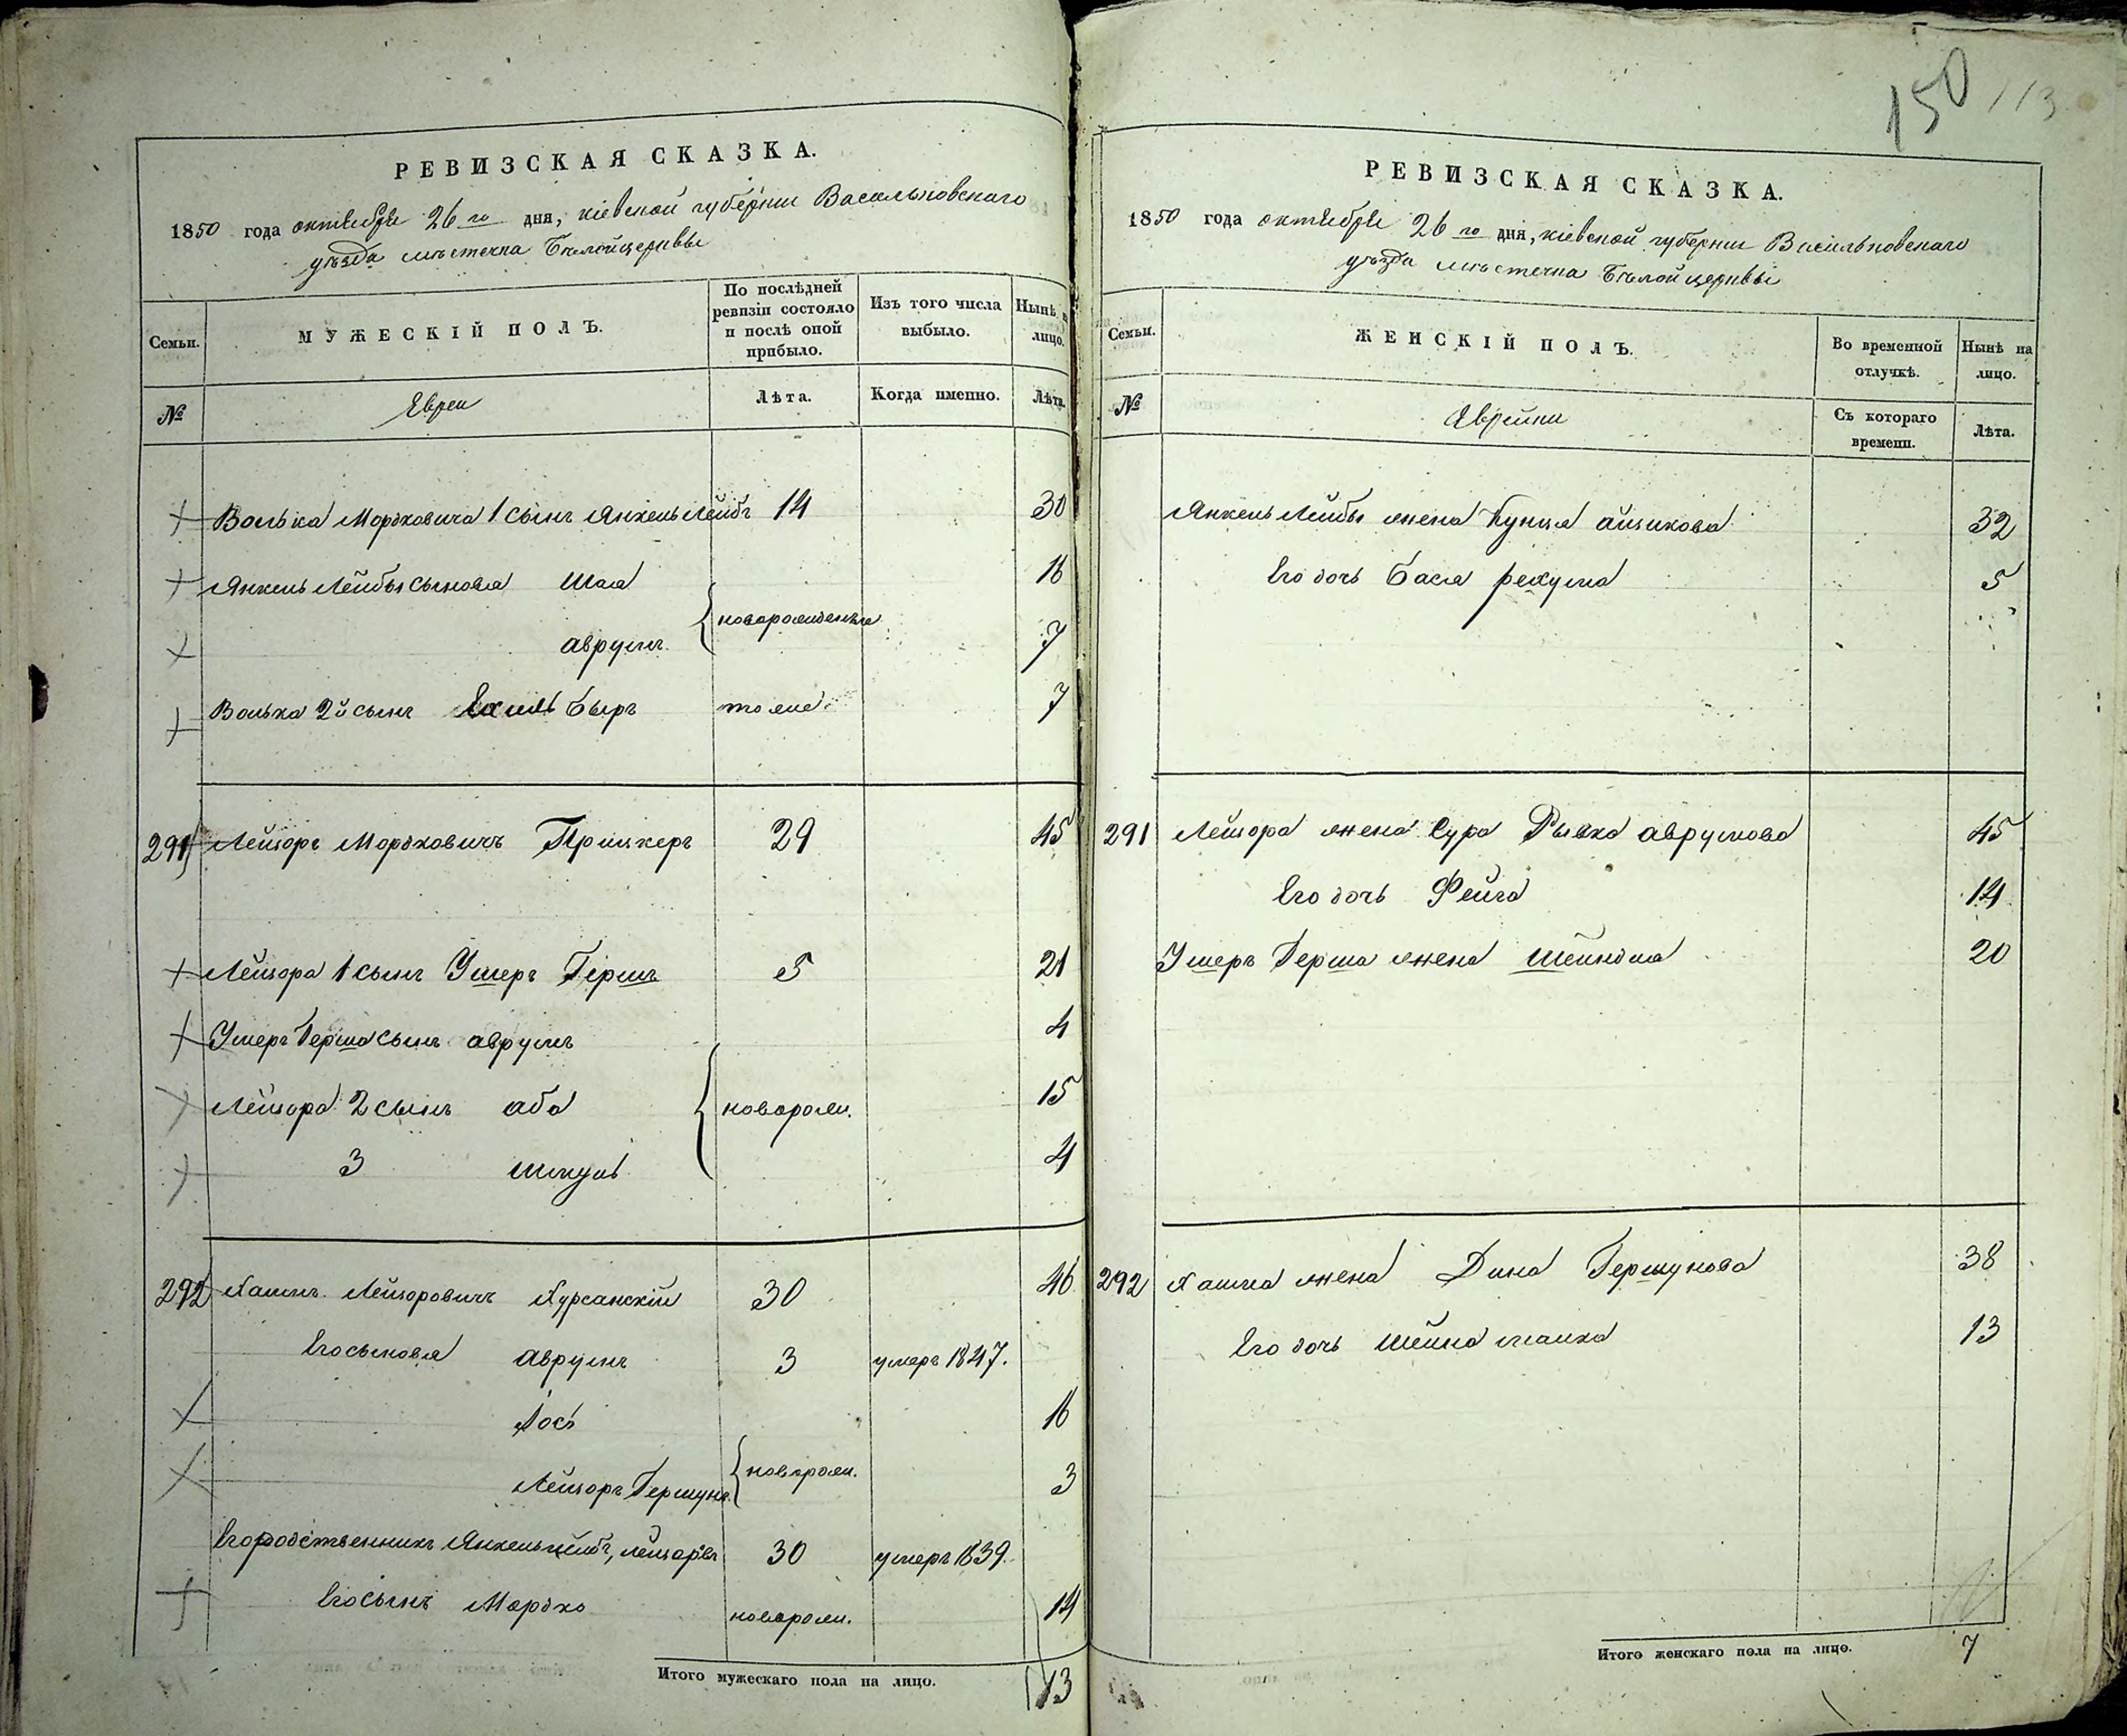 150 113
РЕВИЗСКАЯ СКАЗКА.
1850 года октября 26го дня, кіевской губерніи Васильковскаго
уѣзда мѣстечка Бѣлойцеркви
Семьи. МУЖЕСКІЙ ПОЛЪ. По послѣдней ревизіи состояло и послѣ оной прибыло. Изъ того числа выбыло. Нынѣ на лицо.
№ Евреи Лѣта. Когда именно. Лѣта.
Волька Мордковича 1 сынъ Янкель Лейбъ 14 30
Янкель Лейбы сыновья Шая 16
новорожденные
Аврумъ 7
Волька 2й сынъ Ехиль Беръ тоже 7
291 Лейзоръ Мордковичъ Прицкеръ 29 45
Лейзора 1 сынъ Ушеръ Гершъ 5 21
Ушеръ Герша сынъ аврумъ 4
Лейзора 2 сынъ аба новорож. 15
3 Шмуль 4
292 Хаимъ Лейзоровичъ Хурсанскій 30 46
Его сыновья Аврумъ 3 умеръ 1847.
Іось 16
новорож.
Лейзоръ Гершунъ 3
Его родственникъ Янкель Лейбъ, лейзоръвъ 30 умеръ 1839.
Его сынъ Мордко новорож. 14
Итого мужескаго пола на лицо. 13
РЕВИЗСКАЯ СКАЗКА.
1850 года октября 26го дня, кіевской губерніи Васильковскаго
уѣзда мѣстечка Бѣлой церкви
Семьи. ЖЕНСКІЙ ПОЛЪ. Во временной отлучкѣ. Нынѣ на лицо.
№ Еврейки Съ котораго времени. Лѣта.
Янкель Лейбы жена Кунця айзикова 32
Его дочь Бася рехума 5
291 Лейзора жена Сура Рывка аврумова 45
Его дочь Фейга 14
Ушеръ Герша жена Шейндля 20
292 Хаима жена Дина Гершунова 38
Его дочь Шейна малка 13
Итого женскаго пола на лицо. 7